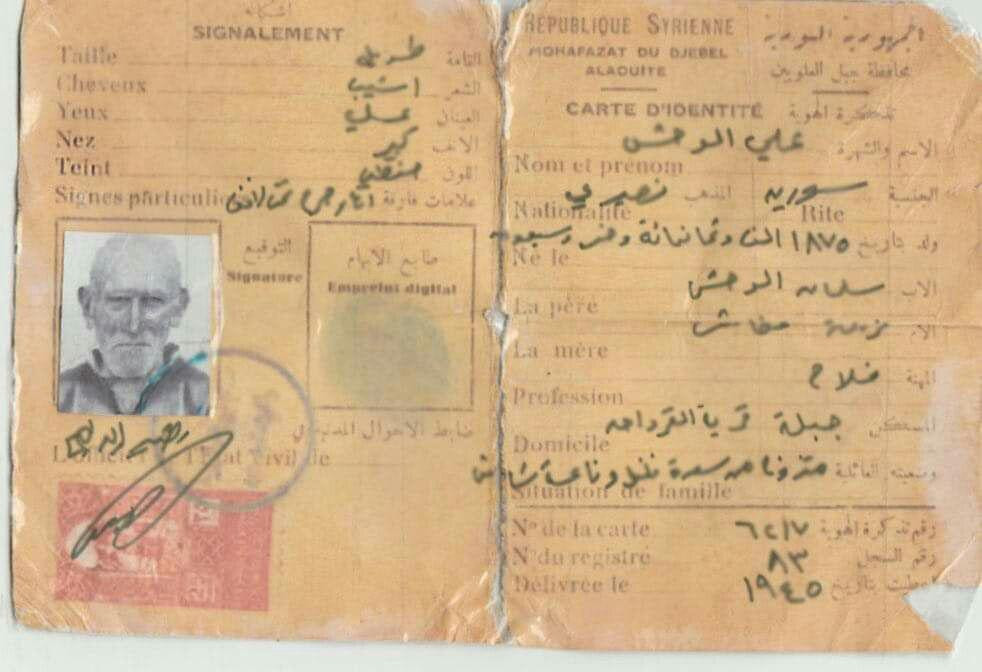 اشكاله
SIGNALEMENT
Taille طويل القامة
Cheveux اشيب الشعر
Yeux عسلي العينان
Nez كبير الانف
Teint حنطي اللون
Signes particuli علامات فارقة
التوقيع
Signature
طابع الابهام
Empreint digital
ضابط الاحوال المدنية
l'Etat civil de
RÉPUBLIQUE SYRIENNE الجمهورية السورية
MOHAFAZAT DU DJEBEL ALAOUITE محافظة جبل العلويين
CARTE D'IDENTITÉ تذكرة الهوية
علي الوحش الاسم والشهرة
Nom et prénom
سورية الجنسية نصيري المذهب
Nationalité Rite
ولد بتاريخ ١٨٧٥ الف وثمانمائة
Né le
سلمان الوحش الاب
La père
الام
La mère
فلاح المهنة
Profession
جبلة قريا القرداحه المسكن
Domicile
وضعيته العائلة
Situation de famille
N° de la carte رقم تذكرة الهوية
N° du registré ٨٣ رقم السجل
Délivrée le ١٩٤٥ اعطيت بتاريخ